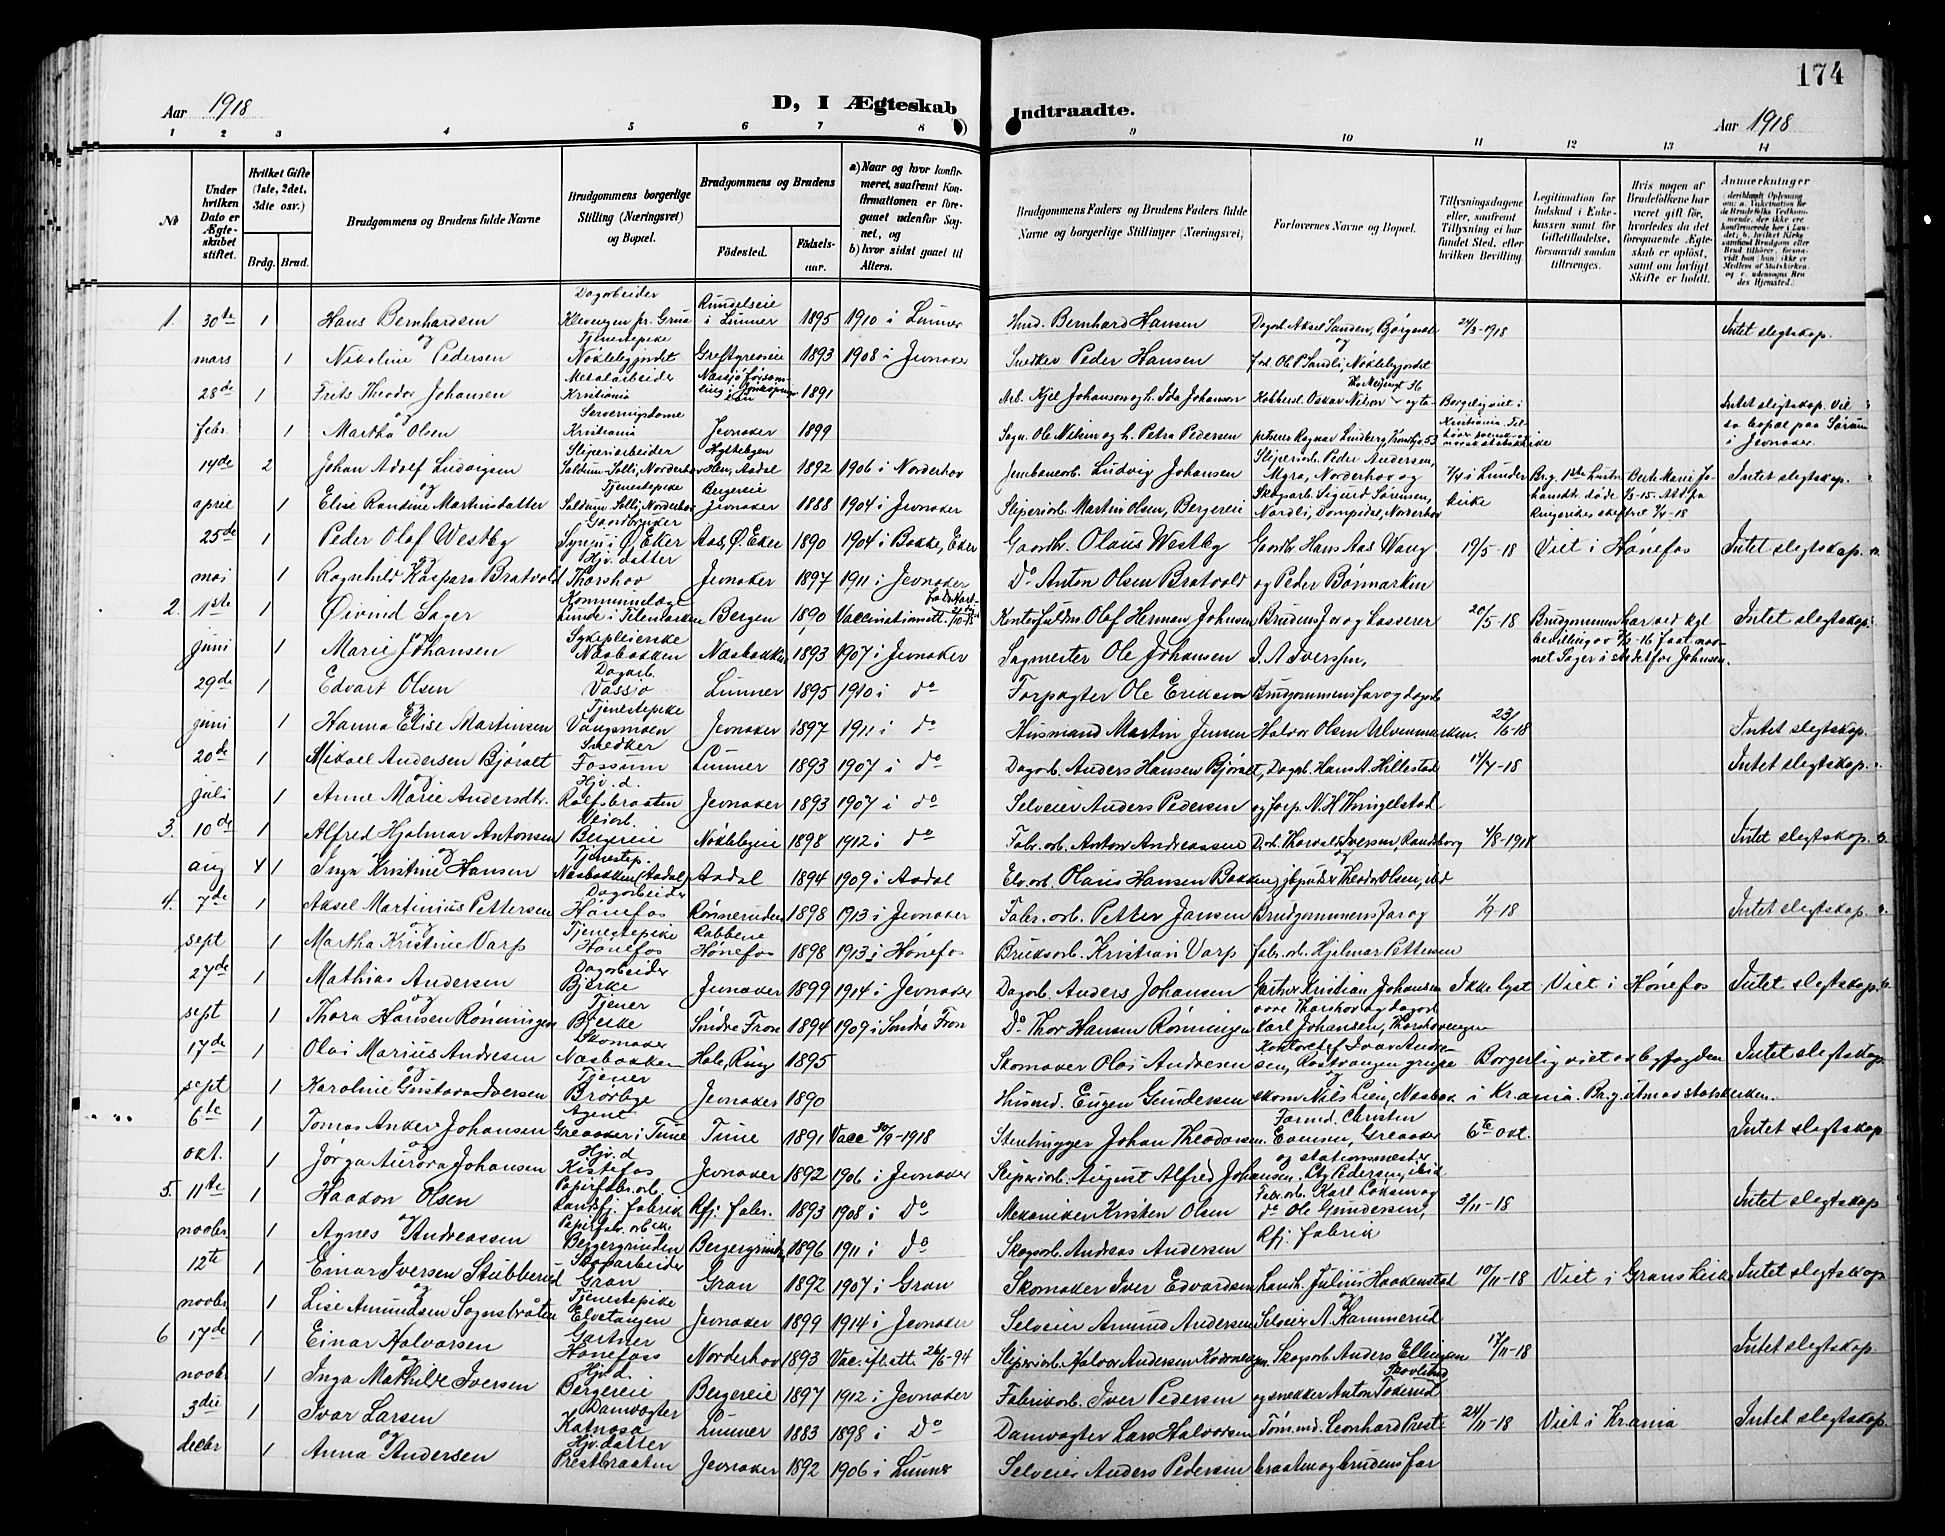 174
Aar 1918
D, I Ægteskab
Indtraadte.
Aar 1918
1 2 3 4 5 6 7 8 9 10 11 12 13 14
No
Under hvilken Dato er Ægteskabet stiftet.
Hvilket Gifte (1ste, 2det, 3die osv.)
Brdg. Brud.
Brudgommens og Brudens fulde Navne
Brudgommens borgerlige Stilling (Næringsvei) og Bopæl.
Brudgommens og Brudens
Fødested.
Fødselsaar.
a) Naar og hvor konfirmeret, saafremt Konfirmationen er foregaaet udenfor Sognet, og
b) hvor sidst gaaet til Alters.
Brudgommens Faders og Brudens Faders fulde Navne og borgerlige Stillinger (Næringsvei)
Forlovernes Navne og Bopæl.
Tillysningsdagene eller, saafremt Tillysning ei har fundet Sted, efter hvilken Bevilling.
Legitimation for Indskud i Enkekassen samt for Giftetilladelse, forsaavidt saadan tiltrænges.
Hvis nogen af Brudefolkene har været gift før, hvorledes da det foregaaende Ægteskab er opløst, samt om lovligt Skifte er holdt.
Anmærkninger
1. 30te 1 Hans Bernhardsen Dagarbeider Klevengen pr. Grua Rundelseie i Lunner 1895 1910 i Lunner Hmd. Bernhard Hansen Dagarb. Aksel Sanden, Bjørgeseie 24/3-1918 Intet slegtskap.
mars 1 og Nikoline Pedersen Tjenestepike Nøklebyjordet Grefsgreneie 1893 1908 i Jevnaker Snedker Peder Hansen og Ole P. Sandli, Nøklebyjordet
28de 1 Frits Theodor Johansen Metalarbeider Kristiania Nassjø forsamling i Jönköpings län 1891 Arb. Kjel Johanson og h. Ida Johanson Kobbersl. Oskar Nilson Borgerlig viet i Kristiania Intet slegtskap. Vil
febr. 1 og Martha Olsen Serveringsdame Kristiania Jevnaker 1899 Sagm. Ole Nilsen og h. Petra Pedersen Ragnar Lindberg ta bopæl paa Sørum i Jevnaker
14de 2 Johan Adolf Ludvigsen Sliperiarbeider Soldum Solli, Norderhov Aadal 1892 1906 i Norderhov Jernbanearb. Ludvig Johansen Sliperiarb. Peder Andersen, Norderhov og 7/4 i Lunder Intet slegtskap.
april 1 og Elise Randine Martinsdatter Tjenestepike Soldum Solli, Norderhov Bergereie Jevnaker 1888 1904 i Jevnaker Sliperiarb. Martin Olsen, Bergereie Skogarb. Sigurd Sørensen, Nordli, Norderhov kirke
25de 1 Peder Olaf Westby Gaardbruker i Ø. Eker Aas, Ø. Eker 1890 1904 i Bakke, Eker Gaardbr. Olaus Westby Gaardbr. Hans Aas Wang 19/5-18 Viet i Hønefos Intet slegtskap.
mai 1 og Ragnhild Kaspara Bratvold Hjv. datter Thorshov Jevnaker 1897 1911 i Jevnaker Do Anton Olsen Bratvold og Peder Børmarken
2. 1ste 1 Øivind Sager Kommunelæge Lunde i Telemarken Bergen 1890 Vaccinationsatt. Kontorfuldm. Olof Herman Johnsen Brudens far og kasserer 20/5-18 Brudgommen har ved kgl. bevilling av 7/2-16 faat navnet Sager i stedet for Johnsen. Intet slegtskap.
juni 1 og Marie Johansen Sykepleierske Næsbakken Næsbakken 1893 1907 i Jevnaker Sagmester Ole Johansen J. A. Iversen,
29de 1 Edvart Olsen Dagarb. Vassjø Lunner 1895 1910 i do Forpagter Ole Eriksen Brudgommens far og dagarb.
juni 1 og Hanna Elise Martinsen Tjenestepike Vangsmoen Jevnaker 1897 1911 i do Husmand Martin Jensen Halvor Olsen Ulvenmarken. 23/6-18 Intet slegtskap.
20de 1 Mikael Andersen Bjøralt Snedker Fossum Lunner 1893 1907 i do Dagarb. Anders Hansen Bjøralt, Dagarb. Hans A. Hillestad 14/7-18 Intet slegtskap.
juli 1 og Anne Marie Andersdtr. Hjv. d. Rolfsbraaten Jevnaker 1893 1907 i do Selveier Anders Pedersen og forp. N. H. Thingelstad
3. 10de 1 Alfred Hjalmar Antonsen Veiarb. Bergereie Nøklebyeie 1898 1912 i do Fabr. arb. Anton Andreassen D. arb. Thorvald Iversen, Randsborg 4/8-1918 Intet slegtskap.
aug 1 og Inga Kristine Hansen Tjenestep. Næsbakken, Aadal Aadal 1894 1909 i Aadal Elv. arb. Olaus Hansen Bakken, og Theodor Olsen, ibid
4. 7de 1 Aksel Martinius Pettersen Dagarbeider Hønefos Rønneruden 1898 1913 i Jevnaker Fabr. arb. Petter Jansen Brudgommens far og 1/9-18 Intet slegtskap
sept 1 og Martha Kristine Varp Tjenestepike Hønefos Rabbene Hønefos 1898 1913 i Hønefos Bruksarb. Kristian Varp fabr. arb. Hjalmar Pettersen
27de 1 Mathias Andersen Dagarbeider Bjerke Jevnaker 1899 1914 i Jevnaker Dagarb. Anders Johansen Gartner Kristian Johansen Ikke lyst Viet i Hønefos Intet slegtskap.
sept 1 og Thora Hansen Rønningen Tjener Bjerke Søndre Fron 1894 1909 i Søndre Fron Do Thor Hansen Rønningen Thorshov og dagarb. Karl Johansen, Thorshovengen
17de 1 Olai Marius Andresen Skomaker Næsbakken Hole, Ring 1895 Skomaker Olai Andresen Kontorchef Ivar Andresen, Borgerlig viet av byfogden Intet slegtskap
sept 1 og Karoline Gustava Iversen Tjener Brørbye Jevnaker 1890 Husmd. Eugen Gundersen skom. Nils Lien, Næsbak i Kr.ania. Brg. utmeldt av statskirken.
6te 1 Tomas Anker Johansen Agent Greaaker i Tune Tune 1891 Vacc 30/9-1918 Stenhugger Johan Theodorsen. Formd. Christen Evensen, Greaaker 6te okt. Intet slegtskap
okt. 1 og Jørga Aurora Johansen Hjv. d Kistefos Jevnaker 1892 1906 i Jevnaker Sliperiarb. August Alfred Johansen. og stationsmester Pedersen, ibid
5. 11te 1 Haakon Olsen Papirfabr. arb. Randsfj. fabrik Rfj. fabr. 1893 1908 i Do Mekaniker Kristen Olsen Fabr. arb. Karl Løken og 3/11-18 Intet slegtskap
novbr 1 og Agnes Andreassen Papirfabr. arb. ske Bergergrinden Bergergrinden 1896 1911 i Do Skogarb. Andreas Andersen do Ole Gundersen, Rfj. fabrik
12te 1 Einar Iversen Stubberud Skogarbeider Gran Gran 1892 1907 i Gran Skomaker Iver Edvardsen Landh. Julius Haakenstad 10/11-18 Viet i Grans kirke Intet slegtskap
novbr 1 og Lise Amundsen Sognsbråten Tjenestepike Elvetangen Jevnaker 1899 1914 i Jevnaker Selveier Amund Andersen og Selveier A. Kammerud
6 17de 1 Einar Halvorsen Gartner Hønefoss Norderhov 1893 Vac. ifl. att. 26/6-94 Sliperiarb. Halvor Andersen Skogsarb. Anders Ellingsen 17/11-18 Intet slegtskap.
novbr 1 og Inga Mathilde Iversen Hjv. d. Bergereie Bergereie 1897 1912 i Jevnaker Fabrikarb. Iver Pedersen og snekker Anton Tokerud
3die 1 Ivar Larsen Damvogter Katnosa Lunner 1883 1898 i Do Damvogter Lars Halvorsen Tømmd. Leonhard Prest 24/11-18 Viet i Kr.ania Intet slegtskap.
decbr 1 og Anna Andersen Hjv. datter Prestbraaten Jevnaker 1892 1906 i Lunner Selveier Anders Pedersen braaten og brudens far